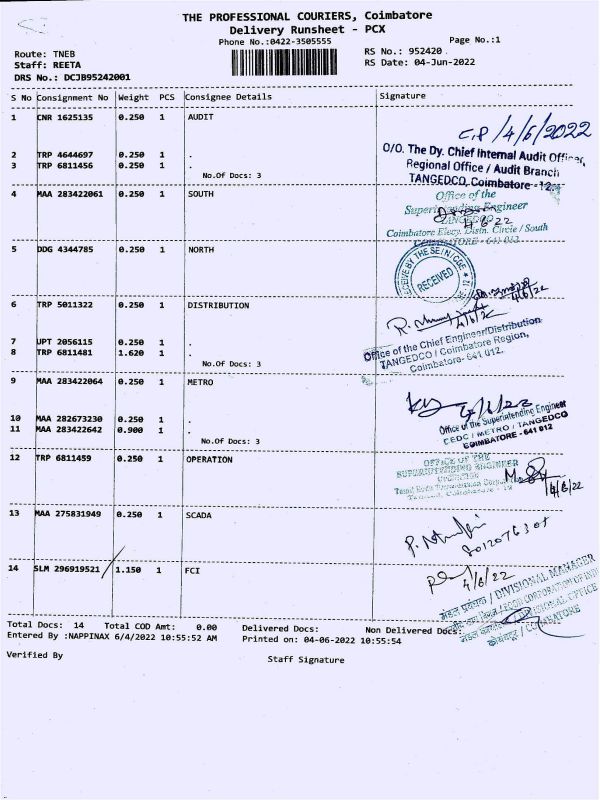 THE PROFESSIONAL COURIERS, Coimbatore
Delivery Runsheet - PCX
Phone No.:0422-3505555
Page No.:1
Route: TNEB
RS No.: 952420
Staff: REETA
RS Date: 04-Jun-2022
DRS No.: DCJB95242001
S No Consignment No Weight PCS Consignee Details Signature
1 CNR 1625135 0.250 1 AUDIT
4/6/2022
2 TRP 4644697 0.250 1 .
3 TRP 6811456 0.250 1 .
No.Of Docs: 3
O/O. The Dy. Chief Internal Audit Officer,
Regional Office / Audit Branch
TANGEDCO, Coimbatore - 12.
4 MAA 283422061 0.250 1 SOUTH
Office of the
Superintending Engineer
TANGEDCO
4.6.22
Coimbatore Elecy. Distn. Circle / South
COIMBATORE - 641 012
5 DDG 4344785 0.250 1 NORTH
RECEIVED
4/6/22
6 TRP 5011322 0.250 1 DISTRIBUTION
7 UPT 2056115 0.250 1 .
8 TRP 6811481 1.620 1 .
No.Of Docs: 3
Office of the Chief Engineer/Distribution
TANGEDCO / Coimbatore Region,
Coimbatore- 641 012.
9 MAA 283422064 0.250 1 METRO
10 MAA 282673230 0.250 1 .
11 MAA 283422642 0.900 1 .
No.Of Docs: 3
Office of the Superintending Engineer
CEDC / METRO / TANGEDCO
COIMBATORE - 641 012
12 TRP 6811459 0.250 1 OPERATION
OFFICE OF THE
SUPERINTENDING ENGINEER
OPERATION
4/6/22
13 MAA 275831949 0.250 1 SCADA
14 SLM 296919521 1.150 1 FCI
4/6/22
मंडल प्रबंधक / DIVISIONAL MANAGER
FOOD CORPORATION OF INDIA
DIVISIONAL OFFICE
COIMBATORE
Total Docs: 14 Total COD Amt: 0.00 Delivered Docs: Non Delivered Docs:
Entered By :NAPPINAX 6/4/2022 10:55:52 AM Printed on: 04-06-2022 10:55:54
Verified By
Staff Signature